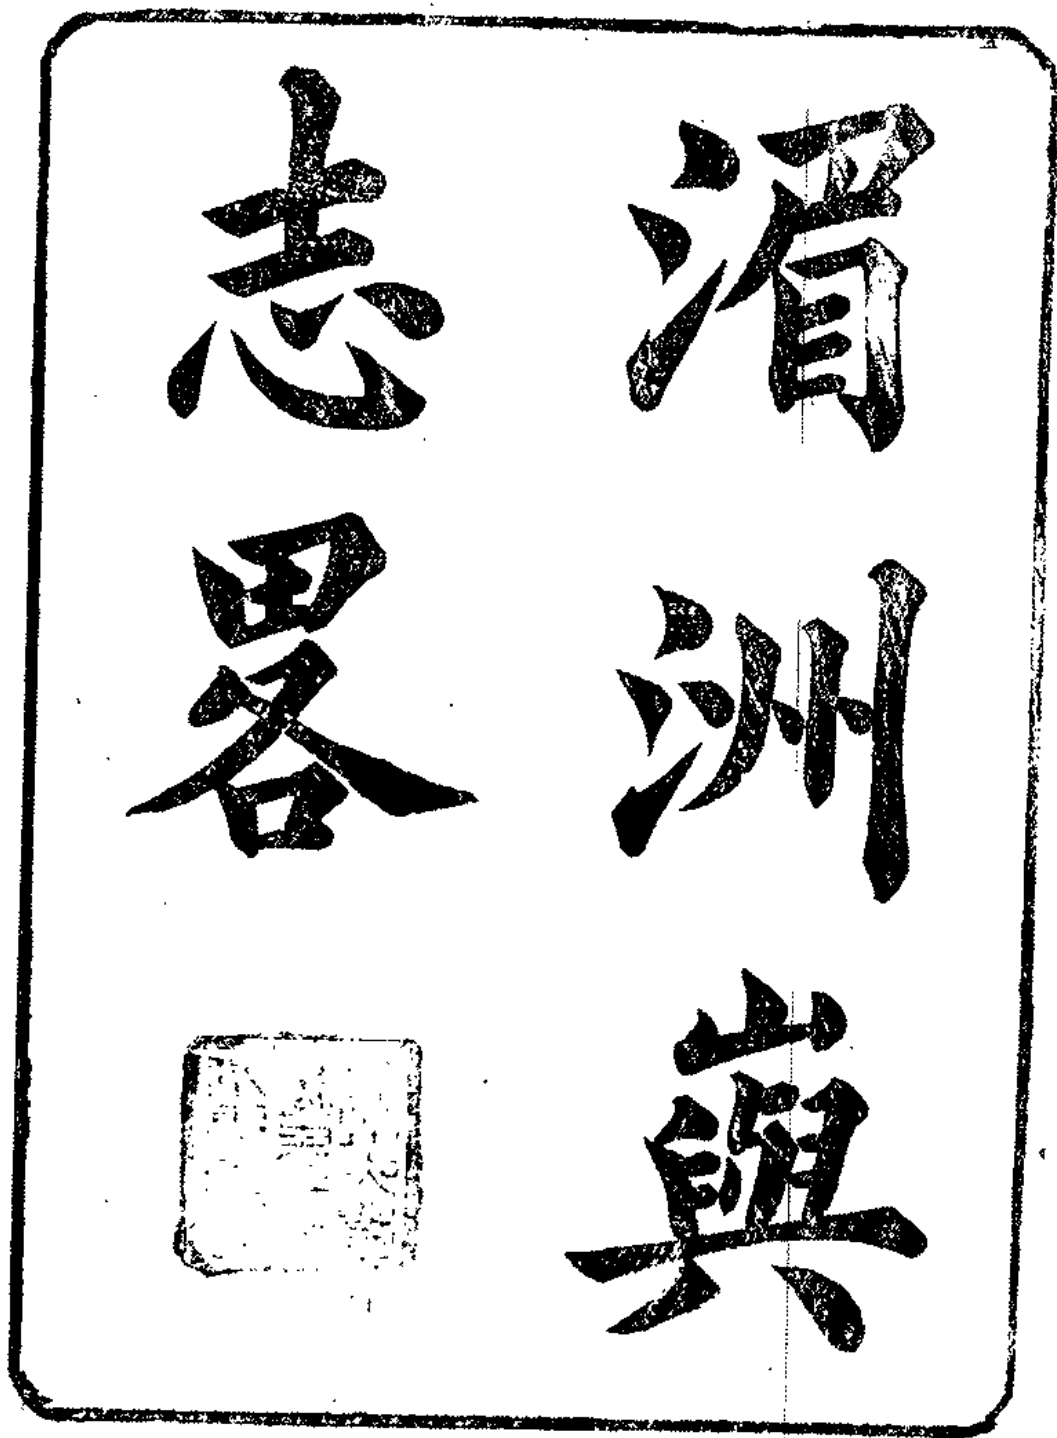 湄洲㠘
志畧